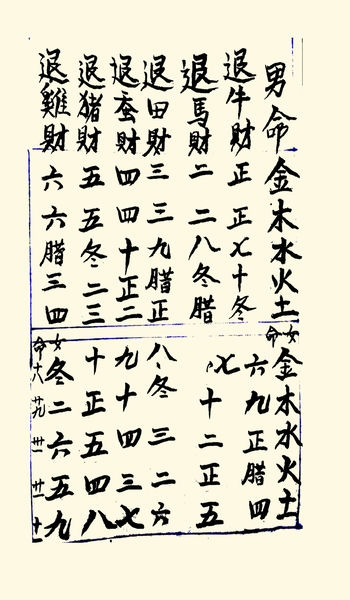 男命金木水火土
退牛財正正七十冬
退馬財二二八冬腊
退田財三三九腊正
退蚕財四四十正二
退猪財五五冬二三
退雞財六六腊三四
女命金木水火土
六九正腊四
七十二正五
八冬三二六
九十四三七
十正五四八
冬二六五九
女命